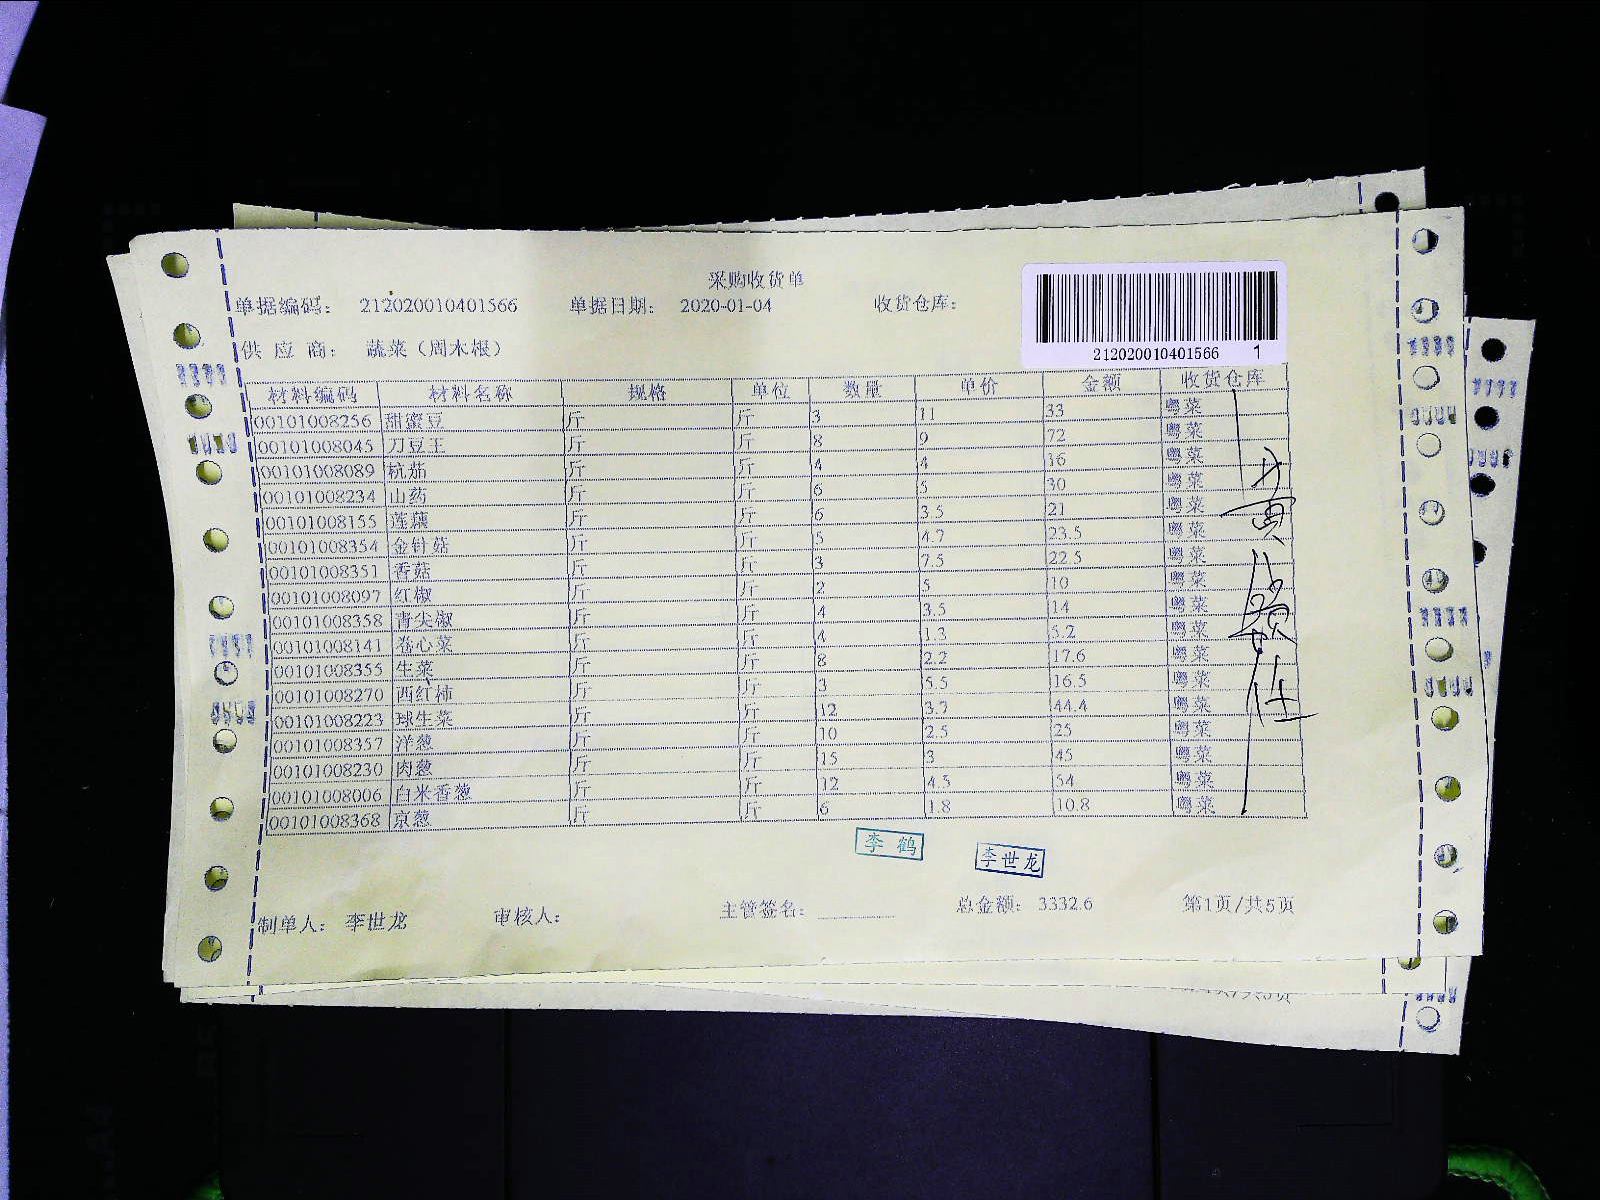 采购收货单
单据编码: 212020010401566 单据日期: 2020-01-04 收货仓库:
212020010401566 1
供 应 商: 蔬菜（周木根）
材料编码 材料名称 规格 单位 数量 单价 金额 收货仓库
00101008256 甜蜜豆 斤 斤 3 11 33 粤菜
00101008045 刀豆王 斤 斤 8 9 72 粤菜
00101008089 杭茄 斤 斤 4 4 16 粤菜
00101008234 山药 斤 斤 6 5 30 粤菜
00101008155 莲藕 斤 斤 6 3.5 21 粤菜
00101008354 金针菇 斤 斤 5 4.7 23.5 粤菜
00101008351 香菇 斤 斤 3 7.5 22.5 粤菜
00101008097 红椒 斤 斤 2 5 10 粤菜
00101008358 青尖椒 斤 斤 4 3.5 14 粤菜
00101008141 卷心菜 斤 斤 4 1.3 5.2 粤菜
00101008355 生菜 斤 斤 8 2.2 17.6 粤菜
00101008270 西红柿 斤 斤 3 5.5 16.5 粤菜
00101008223 球生菜 斤 斤 12 3.7 44.4 粤菜
00101008357 洋葱 斤 斤 10 2.5 25 粤菜
00101008230 肉葱 斤 斤 15 3 45 粤菜
00101008006 白米香葱 斤 斤 12 4.5 54 粤菜
00101008368 京葱 斤 斤 6 1.8 10.8 粤菜
李鹤
李世龙
制单人: 李世龙 审核人: 主管签名: 总金额: 3332.6 第1页/共5页